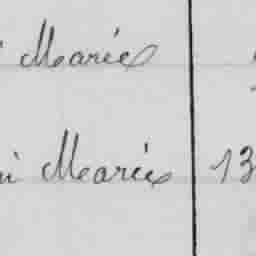 Mariée
Mariée 13